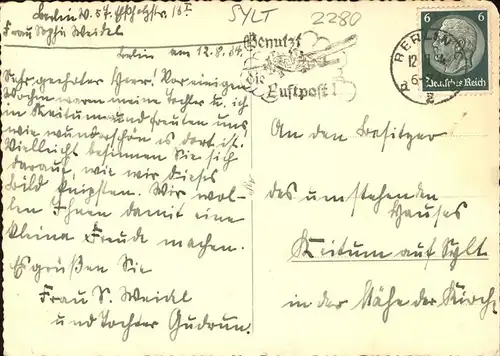 Berlin W. 57. Elßholzstr. 18 I
Frau Sophie Weidel
SYLT
2280
Berlin am 12.8.34.
Sehr geehrter Herr! Vor einigen
Wochen waren meine Tochter u. ich
in Keitum und freuten uns
wie wunderschön es dort ist.
Vielleicht besinnen Sie sich
darauf, wie wir dieses
Bild knipsten. Wir wol-
len Ihnen damit eine
kleine Freude machen.
Es grüßen Sie
Frau S. Weidel
und Tochter Gudrun.
Benutzt
die
Luftpost!
BERLIN
12
6
Deutsches Reich
An den Besitzer
des umstehenden
Hauses
Keitum auf Sylt
in der Nähe der Kirche